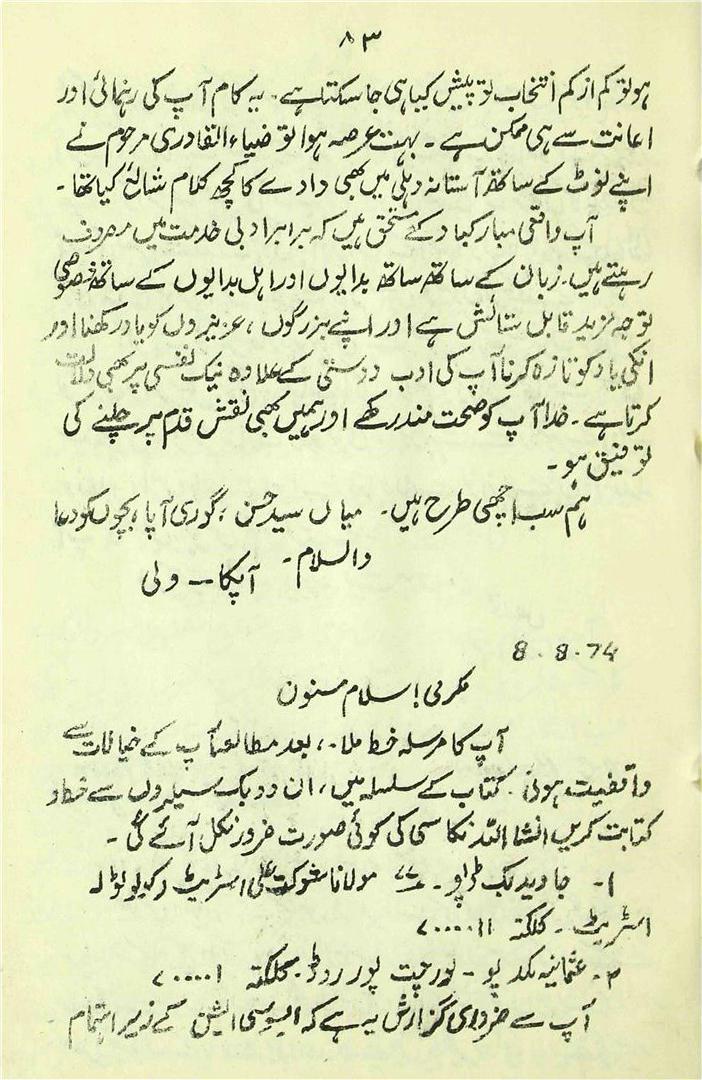 ۸۳
ہو تو کم از کم انتخاب تو پیش کیا ہی جا سکتا ہے۔ یہ کام آپ کی رہنمائی اور
اعانت سے ہی ممکن ہے۔ بہت عرصہ ہوا تو ضیاء القادری مرحوم نے
اپنے نوٹ کے ساتھ آستانہ دہلی میں بھی دادے کا کچھ کلام شائع کیا تھا۔
آپ واقعی مبارکباد کے مستحق ہیں کہ برابر ادبی خدمت میں مصروف
رہتے ہیں۔ زبان کے ساتھ ساتھ بدایوں اور اہل بدایوں کے ساتھ خصوصی
توجہ مزید قابل ستائش ہے اور اپنے بزرگوں، عزیزوں کو یاد رکھنا اور
انکی یاد کو تازہ کرنا آپ کی ادب دوستی کے علاوہ نیک نفسی پر بھی دلالت
کرتا ہے۔ خدا آپ کو صحت مند رکھے اور ہمیں بھی نقش قدم پر چلنے کی
توفیق ہو۔
ہم سب اچھی طرح ہیں۔ میاں سید حسن، گوری آپا، بچوں کو دعا
والسلام۔
آپکا — ولی
8.8.74
مکرمی! سلام مسنون
آپ کا مرسلہ خط ملا، بعد مطالعہ آپ کے خیالات سے
واقفیت ہوئی۔ کتاب کے سلسلہ میں، ان دو بک سیلروں سے خط و
کتابت کریں انشا اللہ نکاسی کی کوئی صورت ضرور نکل آئے گی۔
۱- جاوید بک ڈپو۔ ۷۷ مولانا شوکت علی اسٹریٹ
اسٹریٹ۔ کلکتہ ۷۰۰۰۰۱۱
۲۔ عثمانیہ بکڈپو۔ لور چیت پور روڈ۔ کلکتہ ۷۰۰۰۰۱
آپ سے ضروری گزارش یہ ہے کہ ایسوسی ایشن کے زیر اہتمام